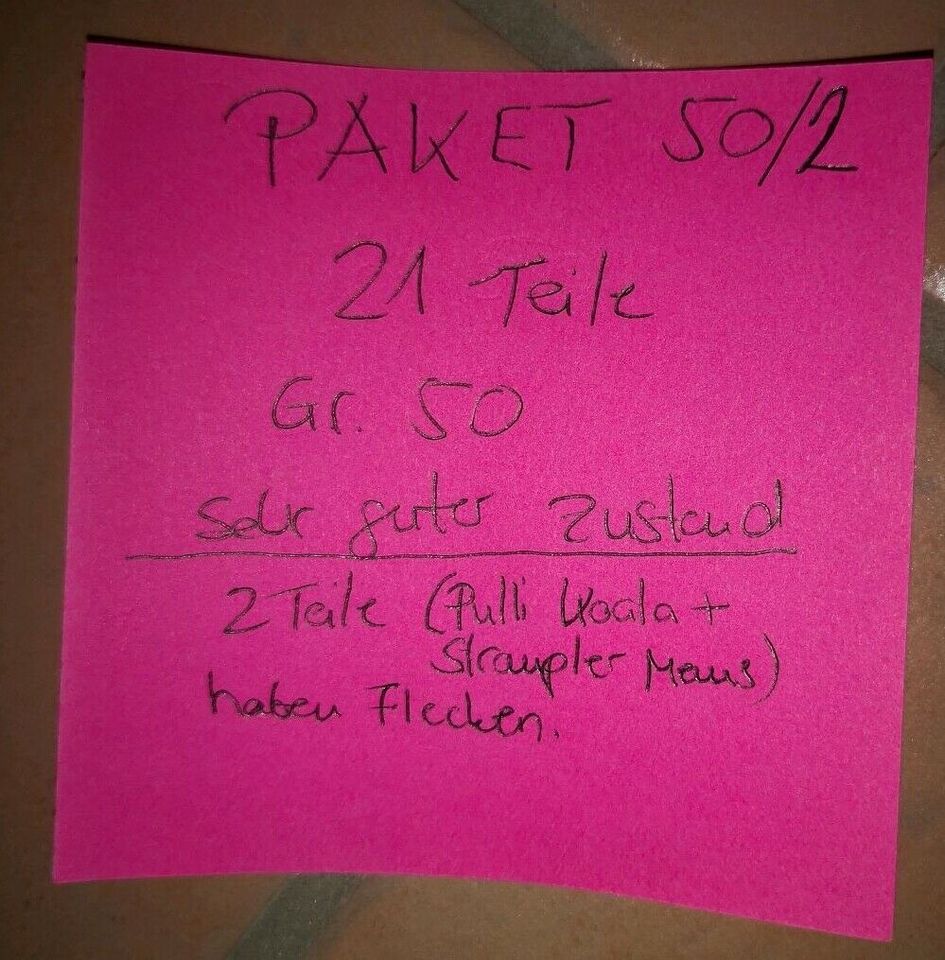 PAKET 50/2
21 Teile
Gr. 50
Sehr guter Zustand
2 Teile (Pulli Koala +
Strampler Maus)
haben Flecken.